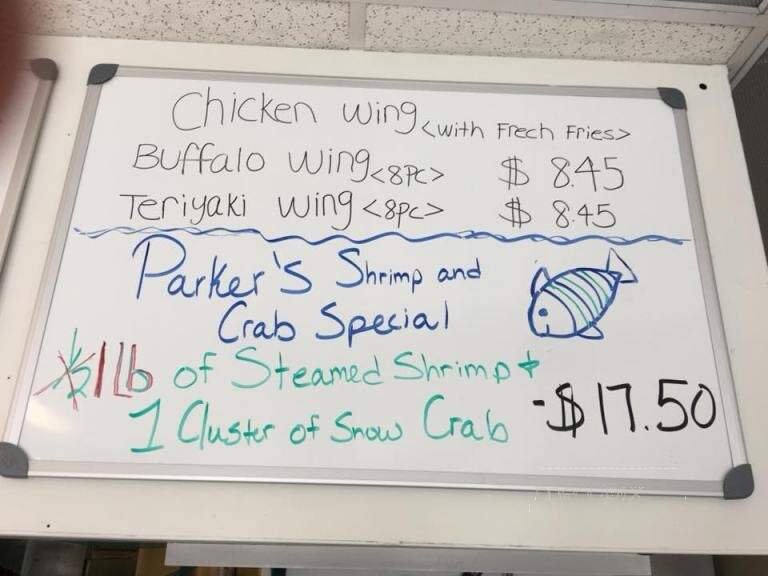 Chicken Wing <with Frech Fries>
Buffalo Wing <8PC> $ 8.45
Teriyaki Wing <8pc> $ 8.45
Parker's Shrimp and
Crab Special
1lb of Steamed Shrimp +
1 Cluster of Snow Crab -$17.50